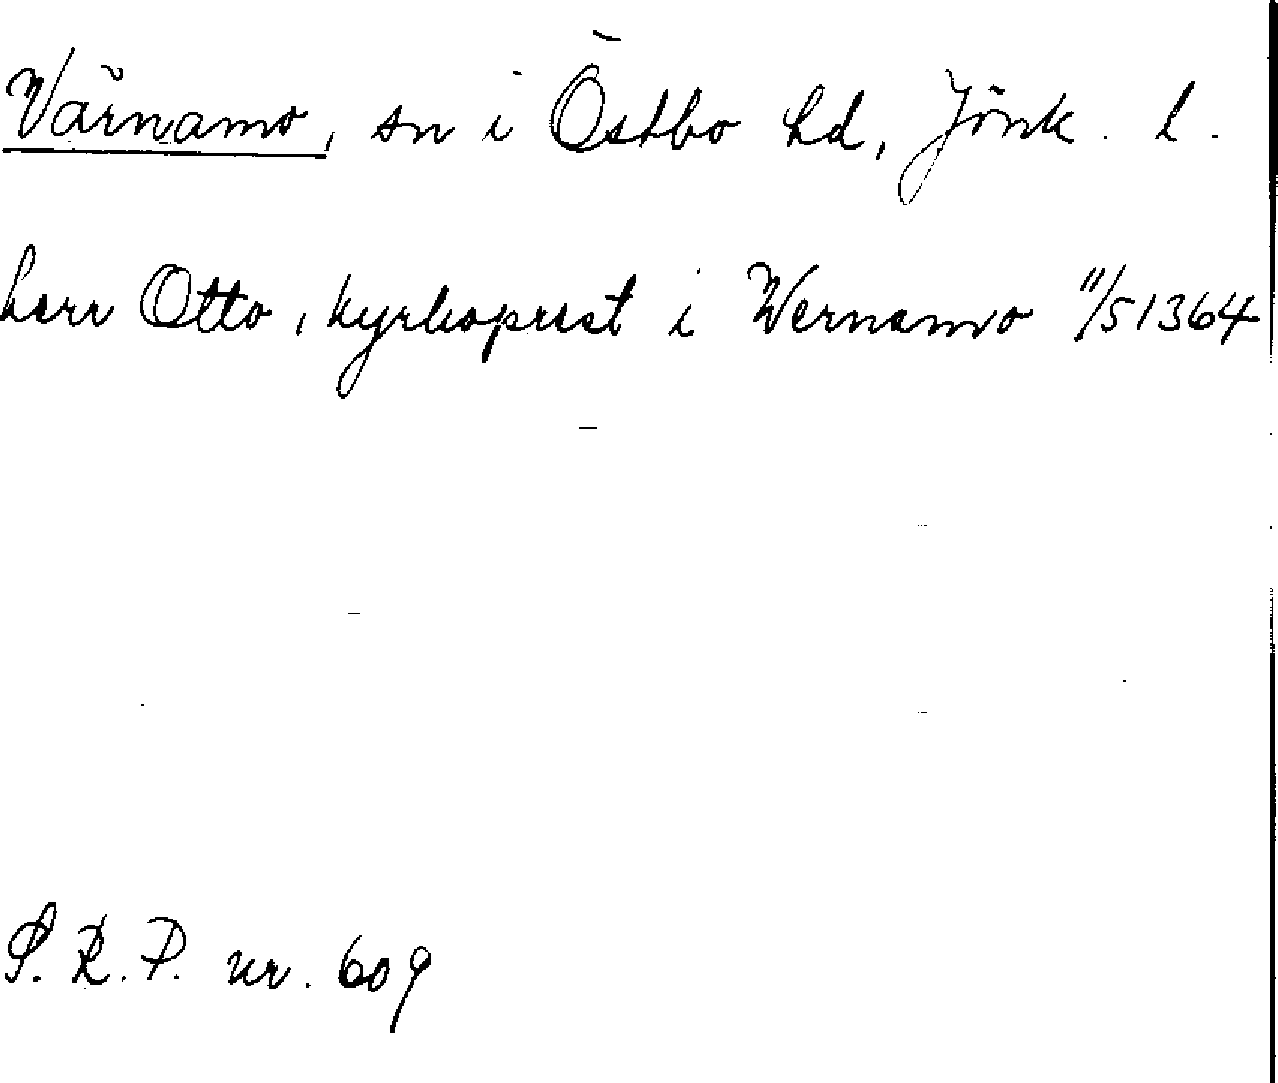 Värnamo, sn i Östbo hd, Jönk. l.
herr Otto, kyrkoprest i Wernamo 11/5 1364
S. R. P. nr. 609